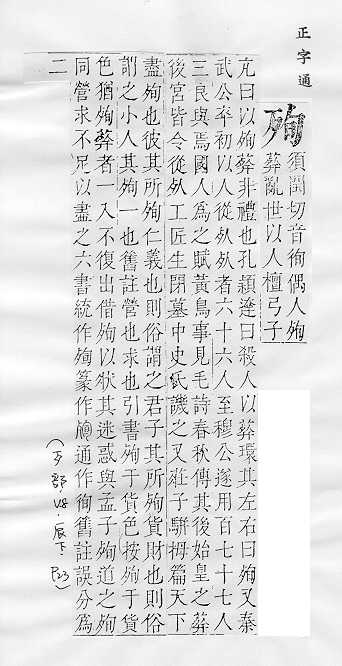 正字通
殉
須閏切音徇偶人殉
葬亂世以人檀弓子
亢曰以殉葬非禮也孔穎達曰殺人以葬環其左右曰殉又秦
武公卒初以人從死死者六十六人至穆公遂用百七十七人
三良與焉國人為之賦黃鳥事見毛詩春秋傳其後始皇之葬
後宮皆令從死工匠生閉墓中史氏譏之又莊子駢拇篇天下
盡殉也彼其所殉仁義也則俗謂之君子其所殉貨財也則俗
謂之小人其殉一也舊註營也求也引書殉于貨色按殉于貨
色猶殉葬者一入不復出借殉以狀其迷惑與孟子殉道之殉
同營求不足以盡之六書統作殉篆作通作徇舊註誤分為
二
(歹部 V8.辰下.P23)